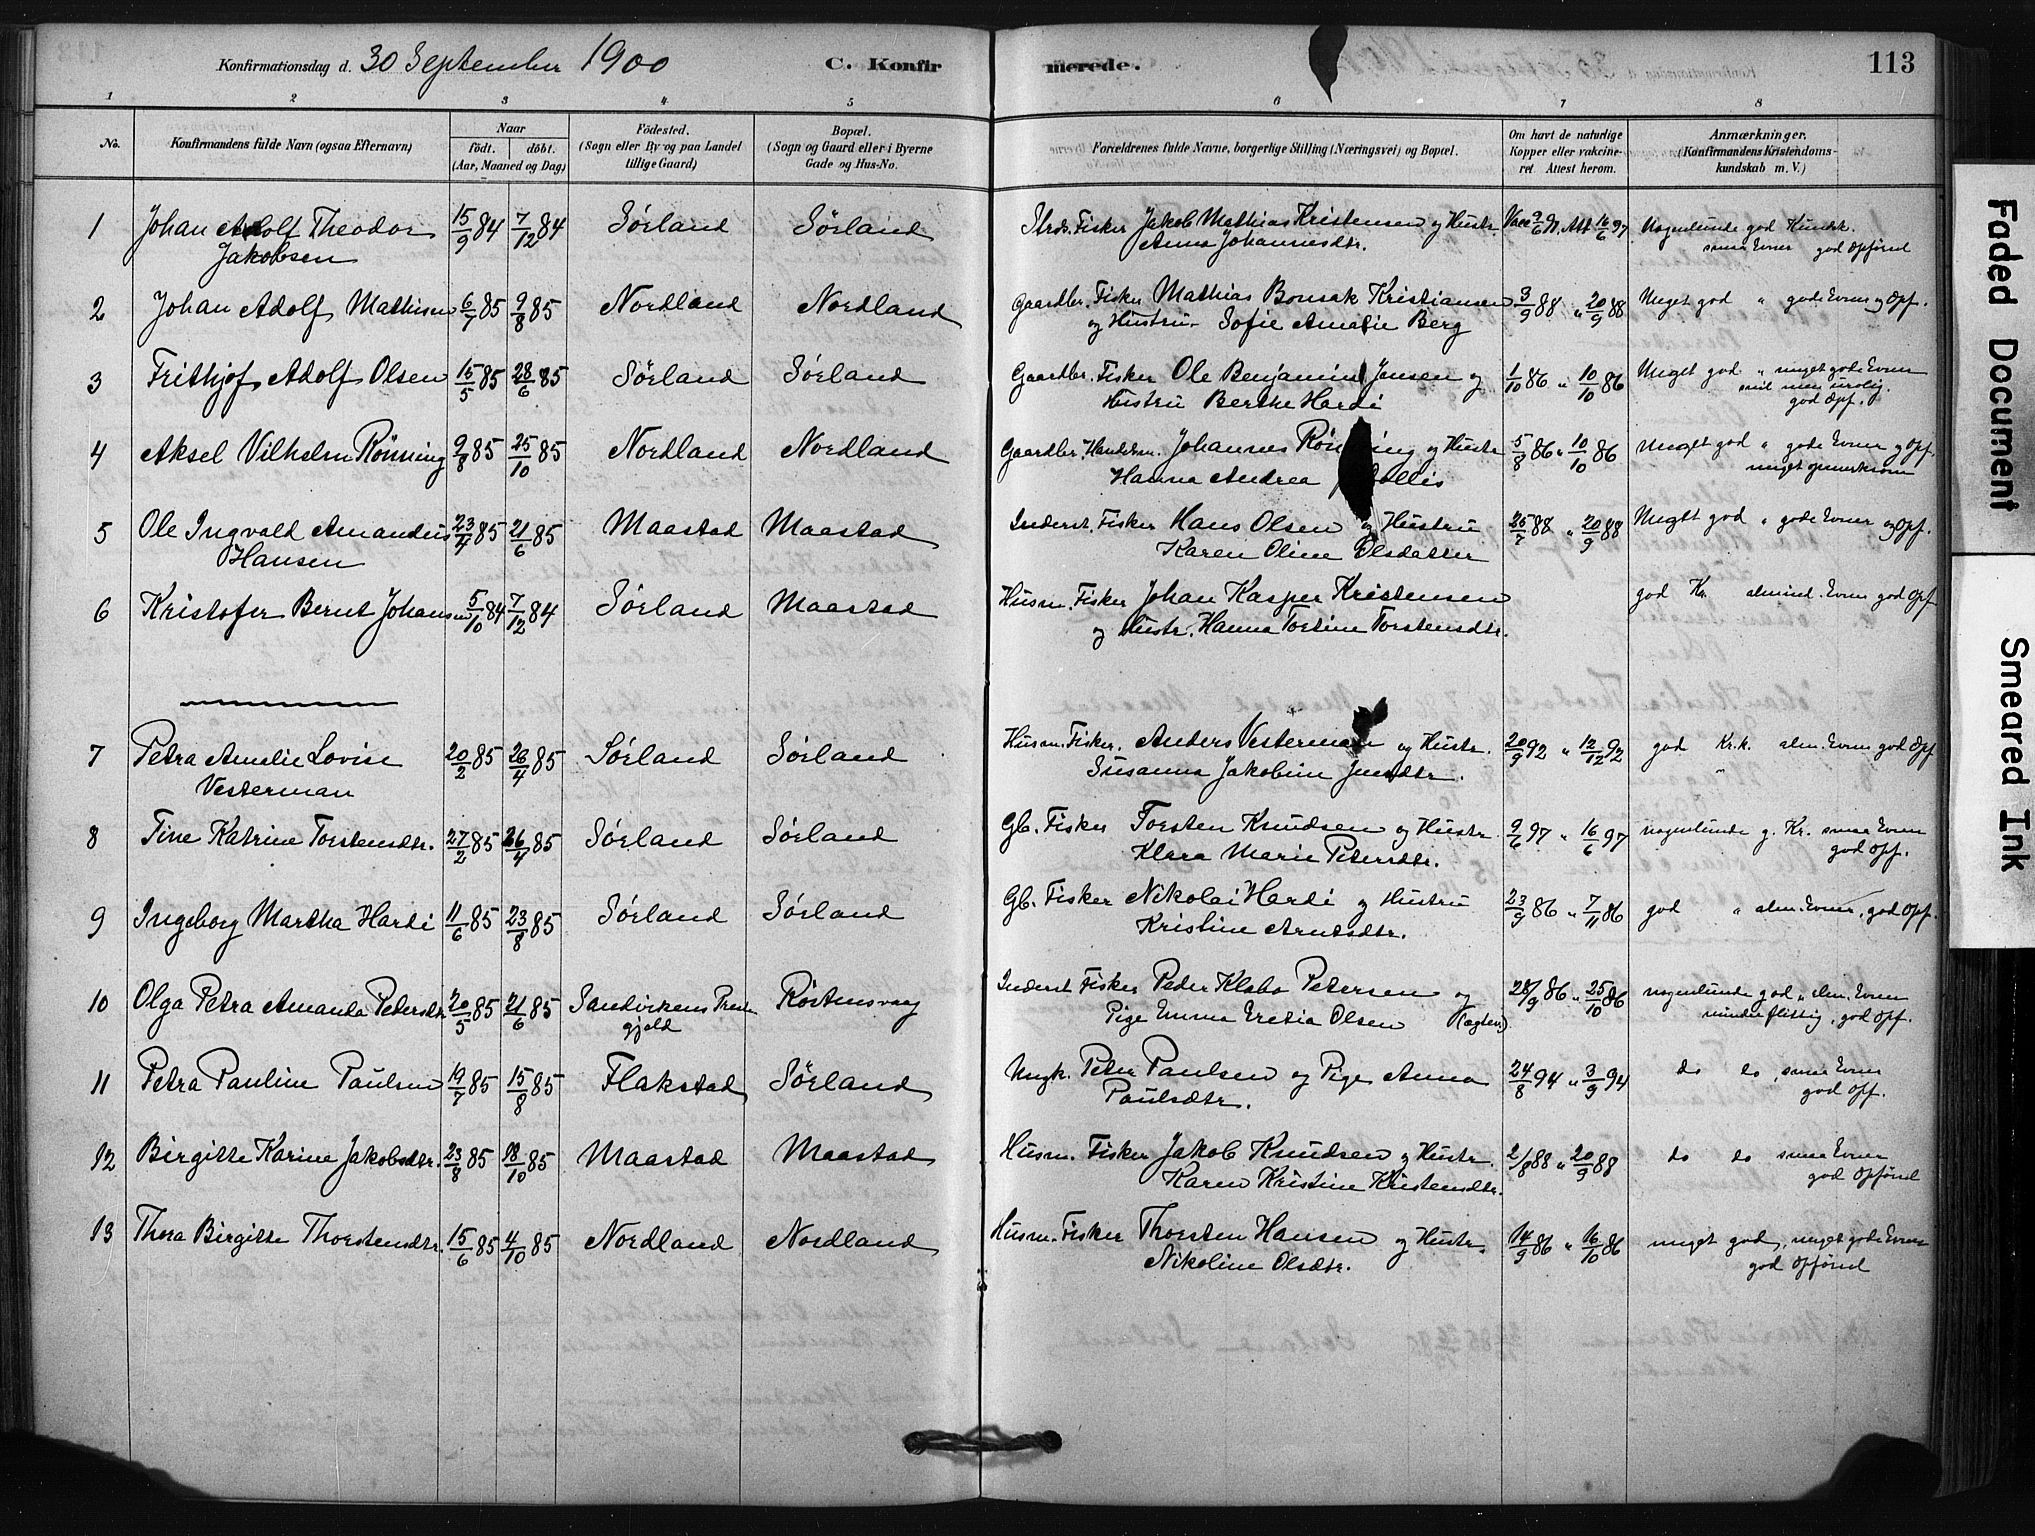 Konfirmationsdag d. 30 September 1900 C. Konfirmerede. 113
1 2 3 4 5 6 7 8
No. Konfirmandens fulde Navn (ogsaa Efternavn) Naar födt. döbt. (Aar, Maaned og Dag) Födested. (Sogn eller By og paa Landet tillige Gaard) Bopæl. (Sogn og Gaard eller i Byerne Gade og Hus-No. Forældrenes fulde Navne, borgerlige Stilling (Næringsvei) og Bopæl. Om havt de naturlige Kopper eller vakcineret Attest herom. Anmærkninger. (Konfirmandens Kristendomskundskab m. V.)
1 Johan Adolf Theodor 15/9 84 7/12 84 Sørland Sørland Strds. Fisker Jakob Mathias Kristensen og Hustr. Vacc 9/6 97. Att 16/6 97 Nogenlunde god Kundsk.
Jakobsen Anna Johannesdtr. smaa Evner god Opførsel
2 Johan Adolf Mathisen 6/7 85 9/8 85 Nordland Nordland Gaardbr. Fisker Mathias Bonsak Kristiansen 3/9 88 " 20/9 88 Meget god " gode Evner og Opf.
og Hustru Sofie Amalie Berg
3 Frithjof Adolf Olsen 15/5 85 28/6 85 Sørland Sørland Gaardbr. Fisker Ole Benjamin Jensen og 1/10 86 " 10/10 86 Meget god " meget gode Evner
Hustru Berthe Hardi snil men urolig.
god Opf.
4 Aksel Vilhelm Rönning 9/8 85 25/10 85 Nordland Nordland Gaardbr. Handelsm. Johannes Rönning og Hustr 5/8 86 " 10/10 86 Meget god " gode Evner og Opf.
Hanna Andrea meget opmerksom
5 Ole Ingvald Amandus 23/4 85 21/6 85 Maastad Maastad Inderst. Fisker Hans Olsen og Hustru 25/7 88 " 20/9 88 Meget god " gode Evner og Opf.
Hansen Karen Oline Olsdatter
6 Kristofer Bernt Johansen 5/10 84 7/12 84 Sørland Maastad Husm. Fisker Johan Kasper Kristensen god Kr. almind. Evner god Opf
og Hustr. Hanna Torstensdtr.
7 Petra Amalie Lovise 20/2 85 26/4 85 Sørland Sørland Husm. Fisker. Anders Vesterman og Hustr. 20/9 92 " 12/12 92 god Kr.k. alm. Evner god Opf
Vesterman Susanna Jakobine Jensdtr.
8 Tine Katrine Torstensdtr. 27/2 85 26/4 85 Sørland Sørland Gb. Fisker Torsten Knudsen og Hustr. 9/6 97 " 16/6 97 nogenlunde g. Kr. smaa Evner
Klara Marie Petersdtr. god Opf.
9 Ingeborg Martha Hardi 11/6 85 23/8 85 Sørland Sørland Gb. Fisker Nikolai Hardi og Hustru 23/9 86 " 7/11 86 god " alm. Evner, god Opf.
Kristine Arntsdtr.
10 Olga Petra Amanda Petersdtr 20/5 85 21/6 85 Sandvikens Preste Røstensvaag Inderst Fisker Peder Klabo Petersen og 28/9 86 " 25/10 86 nogenlunde god " alm. Evner
gjeld Pige Emma Eretia Olsen mindre flittig, god Opf.
11 Petra Pauline Paulsen 19/7 85 15/8 85 Flakstad Sørland Ungk. Peter Paulsen og Pige Anna 24/8 94 " 3/9 94 do do, smaa Evner
Paulsdtr. god Opf.
12 Birgitte Karine Jakobsdtr. 23/8 85 18/10 85 Maastad Maastad Husm. Fisker Jakob Knudsen og Hustr. 2/8 88 " 20/9 88 do do smaa Evner
Karen Kristine Kristensdtr. god Opførsel
13 Thora Birgitte Thorstensdtr. 15/6 85 4/10 85 Nordland Nordland Husm. Fisker Thorsten Hansen og Hustr. 14/9 86 " 16/10 86 meget god, meget gode Evner
Nikoline Olsdtr. god Opførsel
Faded Document
Smeared Ink